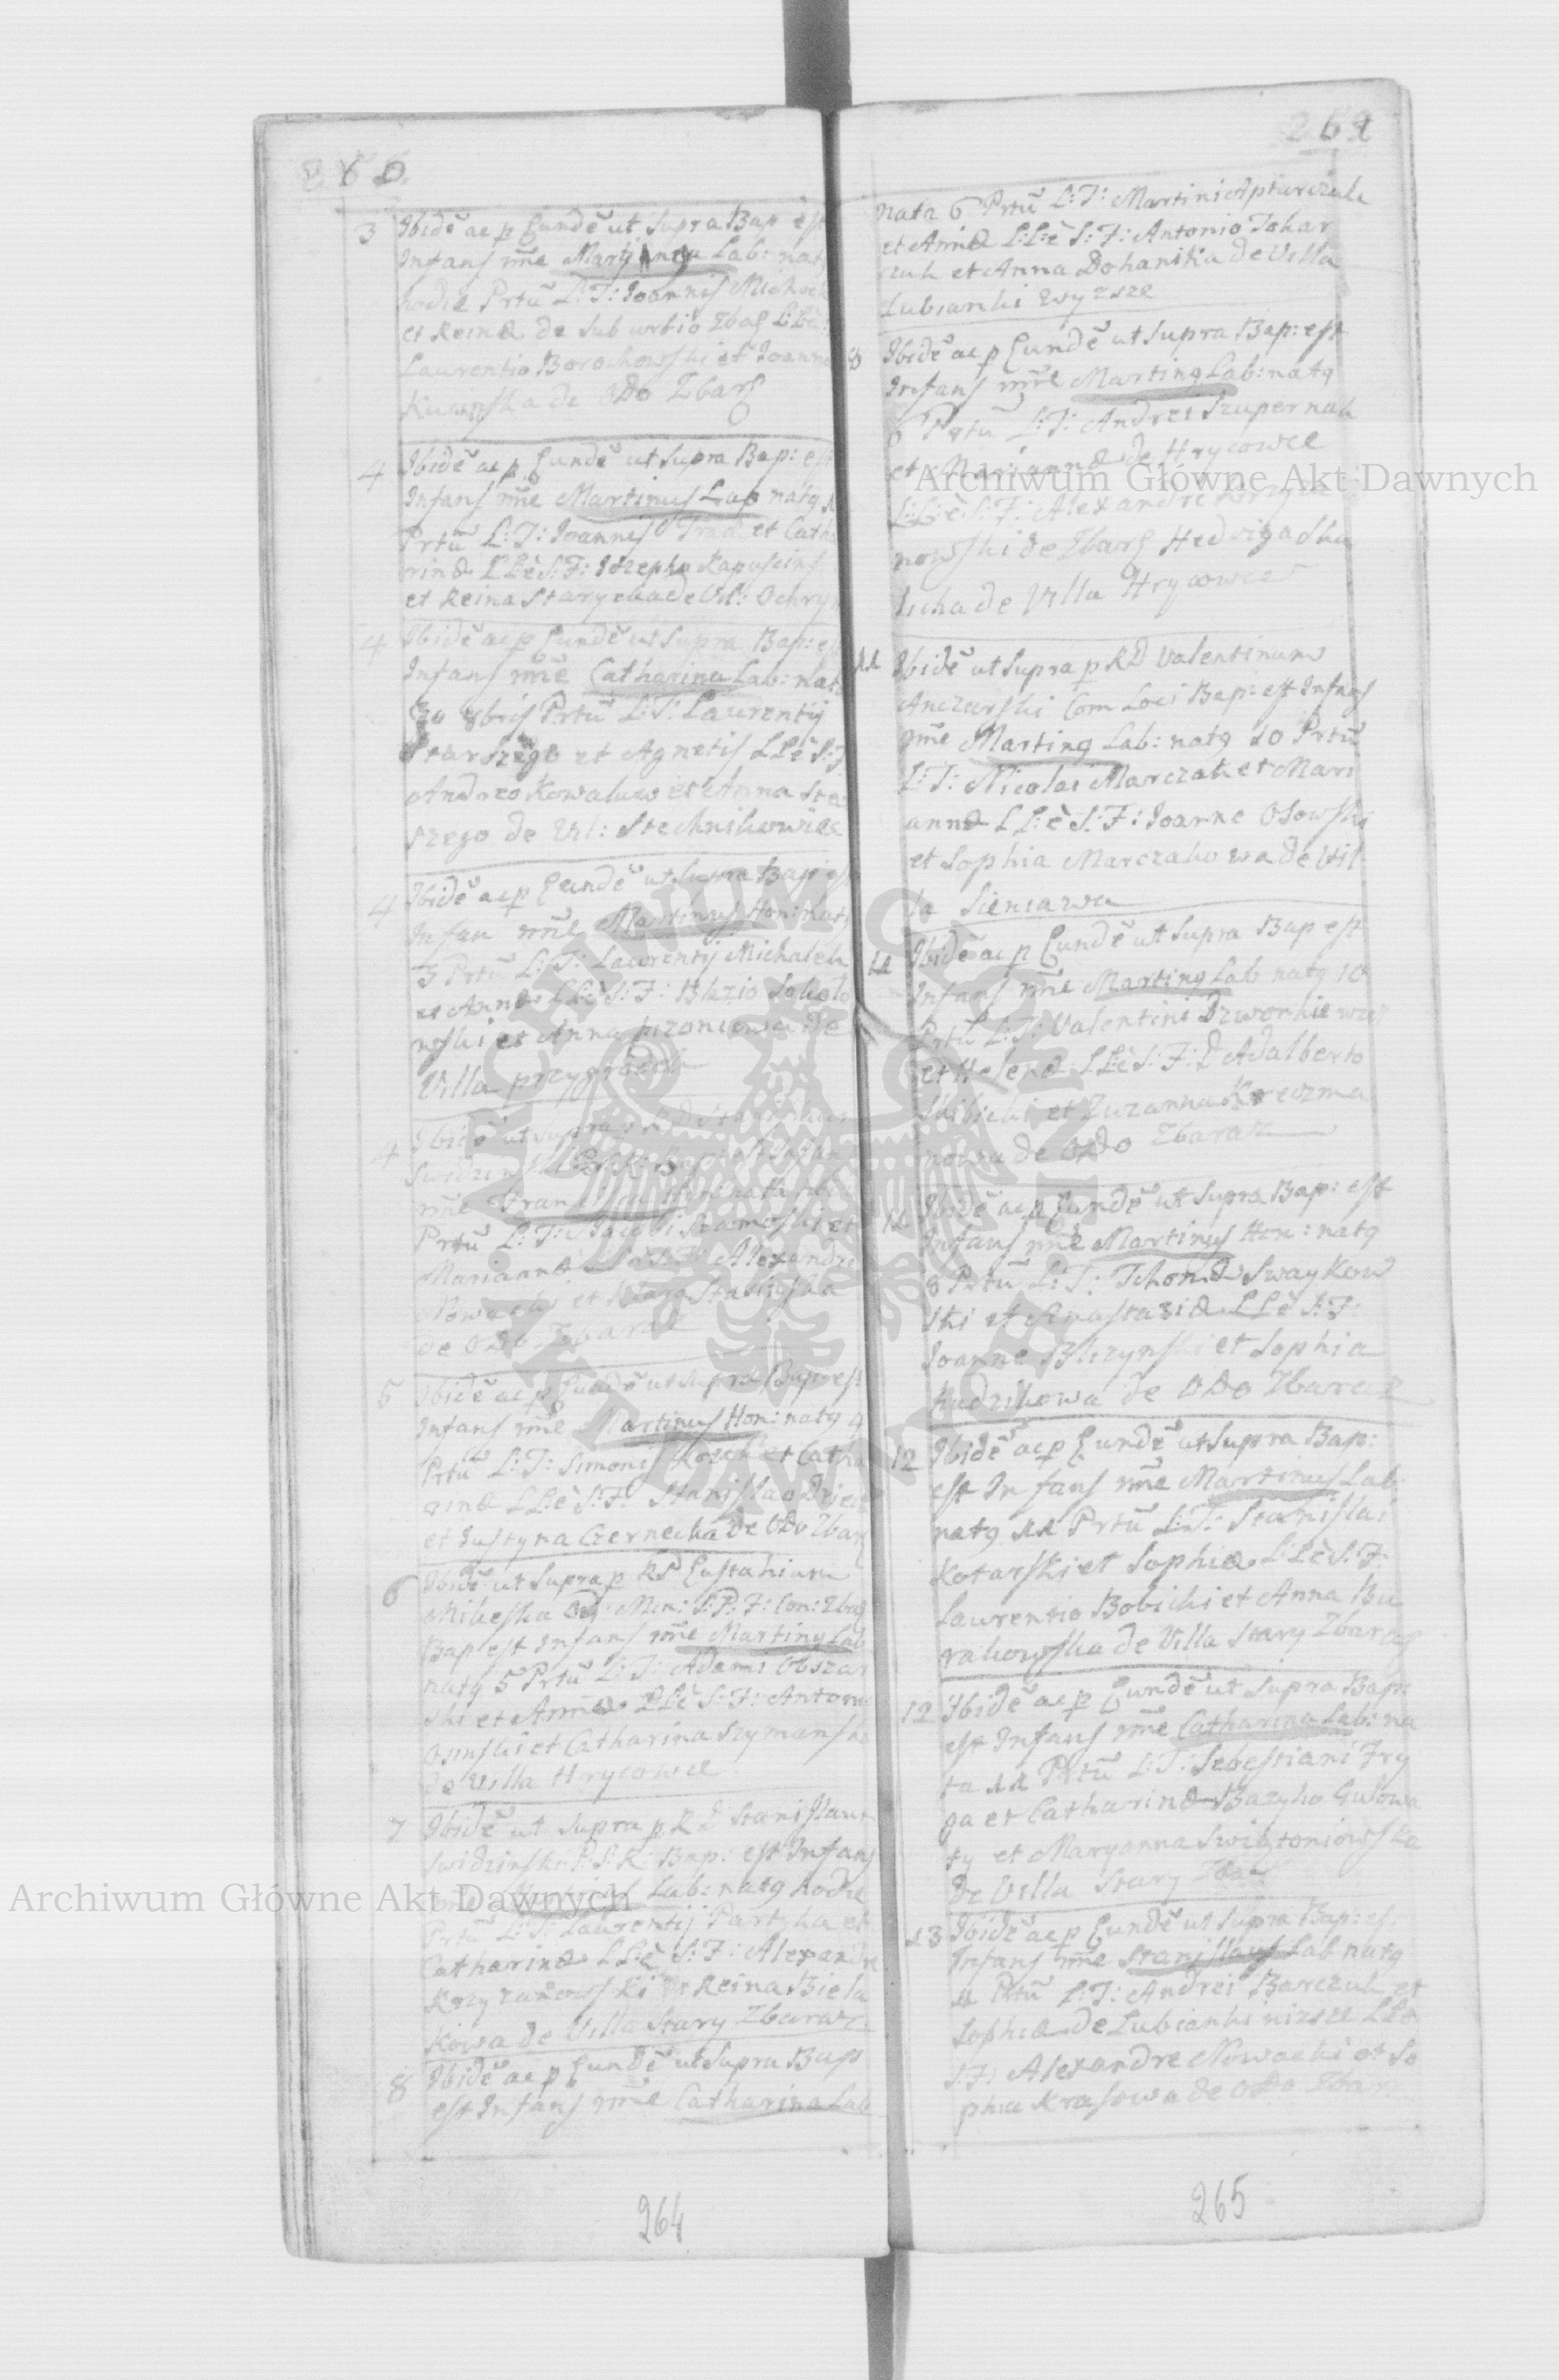 260
3 Ibidē ac p Eundē ut Supra Bap est
Infans nn̄e Martinus Lab: nat
hodie Prtū L:T: Joannis
et Reinæ de Sub urbio Zbar L:L:è
Laurentio Borochowski et Joanna
de Odo Zbar
4 Ibidē ac p Eundē ut Supra Bap: est
Infans nn̄e Martinus Lab natq
Prtū L:T: Joannis et Catha
rinæ LL:è S:F: Josepho Kapuscins
et Reina de Vil: Ochryn
4 Ibidē ac p Eundē ut Supra Bap: est
Infans nn̄e Catharina Lab: nata
30 8bris Prtū L:T: Laurentij
Starszego et Agnetis LLè S:F
Andreo Kowaluw et Anna Star
szego de Vil: Stechnikowiec
4 Ibidē ac p Eundē ut Supra Bap: est
Infan nn̄e Martinus Hon: natq
3 Prtū L:T: Laurentij Michalek
et Annæ LL:è S:F: Blazio Sokolo
wski et Anna de
Villa przygrodek
4 Ibidē ut Supra p RD Stanislaum
Swidzins Bap: est Infan
nn̄e Francisca Hon: nata
Prtū L:T: et
Mariannæ Alexandro
Nowacki et
de Odo Zbaraz
5 Ibidē ac p Eundē ut Supra Bap: est
Infans nn̄e Martinus Hon: natq 4
Prtū L:T: Simonis et Catha
rinæ LL:è S:F: Stanislao
et Justyna Czernecka de Odo Zbar
6 Ibidē ut Supra p RD Eustahium
Mikeska Ord: Min: S:P:F: Con: Zbar
Bap est Infans nn̄e Martinq Lab
natq 5 Prtū L:T: Adami Obszar
ski et Annæ LLè S:F: Antoni
Osinski et Catharina Szymanska
de Villa Hrycowce
7 Ibidē ut Supra p RD Stanislaum
Swidzinski P:S:K: Bap: est Infans
Lab: natq hodie
Prtū L:T: Laurentij Partyka et
Catharinæ LL:è S:F: Alexandro
Krzyzanowski et Reina Biela
kowa de Villa Stary Zbaraz
8 Ibidē ac p Eundē ut Supra Bap
est Infans nn̄e Catharina Lab
264
261
nata 6 Prtū L:T: Martini Apturczuk
et Annæ L:L:è S:F: Antonio Tokar
czuk et Anna Dohanika de Villa
Lubianki wyzsze
8 Ibidē ac p Eundē ut Supra Bap: est
Infans nn̄e Martinq Lab: natq
6 Prtū L:T: Andrei Szupernak
et Mariannæ de Hrycowce
L:L:è S:F: Alexandro Krzyza
nowski de Zbar Hedviga Ska
licha de Villa Hrycowce
11 Ibidē ut Supra p RD Valentinum
Anczarski Com Loci Bap: est Infans
nn̄e Martinq Lab: natq 10 Prtū
L:T: Nicolai Marczak et Mari
annæ LL:è S:F: Joanne Osowski
et Sophia Marczakowa de Vil
la Sieniawa
11 Ibidē ac p Eundē ut Supra Bap est
Infans nn̄e Martinq Lab natq 10
Prtū L:T: Valentini Dzworkiewicz
et Helenæ LL:è S:F: D Adalberto
Skibicki et Zuzanna Kreczma
nowa de Odo Zbaraz
11 Ibidē ac p Eundē ut Supra Bap: est
Infans nn̄e Martinus Hon: natq
8 Prtū L:T: Swaykow
ski et Anastaziæ LLè S:F:
Joanne Bluzynski et Sophia
Kudzikowa de Odo Zbaraz
12 Ibidē ac p Eundē ut Supra Bap:
est Infans nn̄e Martinus Lab:
natq 11 Prtū L:T: Stanislai
Kotarski et Sophiæ L:Lè S:F:
Laurentio Bobicki et Anna Bu
rakowska de Villa Stary Zbaraz
12 Ibidē ac p Eundē ut Supra Bap:
est Infans nn̄e Catharina Lab: na
ta 11 Prtū L:T: Sebestiani Fry
ga et Catharinæ Bazyho Gulowa
ty et Maryanna Swiątoniowska
De Villa Stary Zbar
13 Ibidē ac p Eundē ut Supra Bap: est
Infans nn̄e Stanislaus Lab natq
11 Prtū L:T: Andrei Barczuk et
Sophiæ de Lubianki nizsze LLè
S:F: Alexandre Nowacki et So
phia Krasowa de Odo Zbar
265
Archiwum Główne Akt Dawnych
Archiwum Główne Akt Dawnych
ARCHIWUM GŁÓWNE AKT DAWNYCH